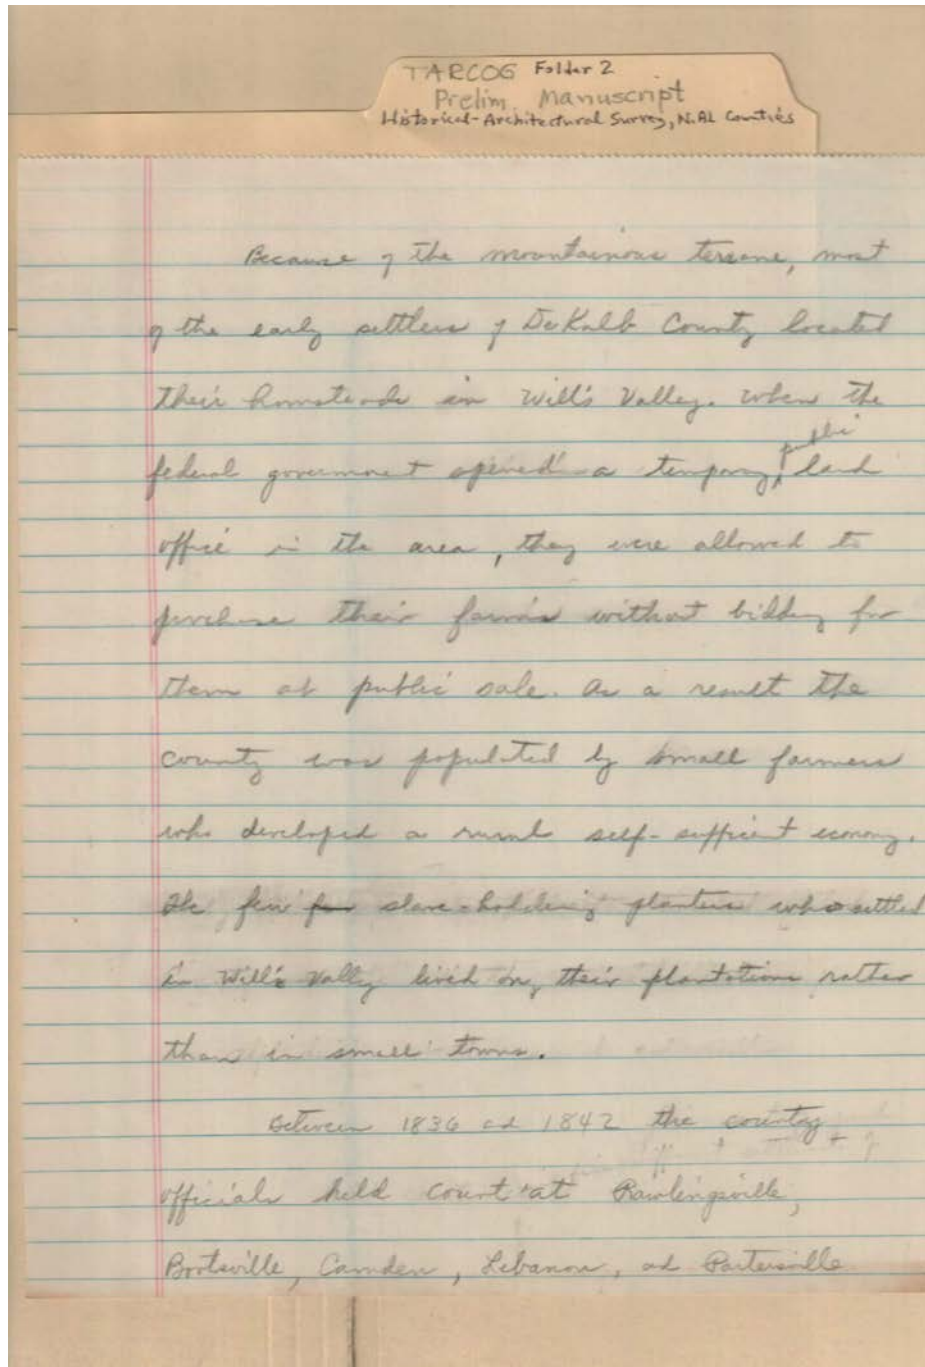 TARCOG Folder 2
Prelim. Manuscript
Historical-Architectural Survey, N. AL Counties
Because of the mountainous terrane, most
of the early settlers of DeKalb County located
their homsteads in Will's Valley. When the
federal government opened a tempory public land
office in the area, they were allowed to
purchase their farms without bidding for
them at public sale. As a result the
county was populated by small farmers
who developed a rural self-sufficient economy.
The few slave-holding planters who settled
in Will's Valley lived on their plantations rather
than in small towns.
Between 1836 ad 1842 the county
officials held court at Rawlingsville,
Bootsville, Camden, Lebanon, ad Portersville